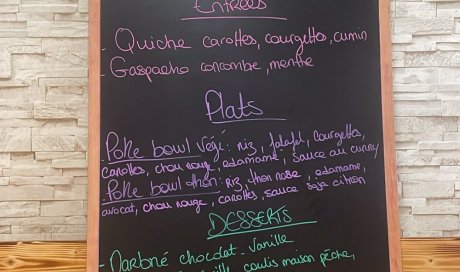 Entrées
- Quiche carottes, courgettes, cumin
- Gaspacho concombre, menthe
Plats
- Poke bowl végé : riz, falafel, courgettes,
carottes, chou rouge, edamame, sauce au curry
- Poke bowl thon : riz, thon rose, edamame,
avocat, chou rouge, carottes, sauce soja citron
DESSERTS
- Marbré chocolat - vanille
coulis maison pêche,